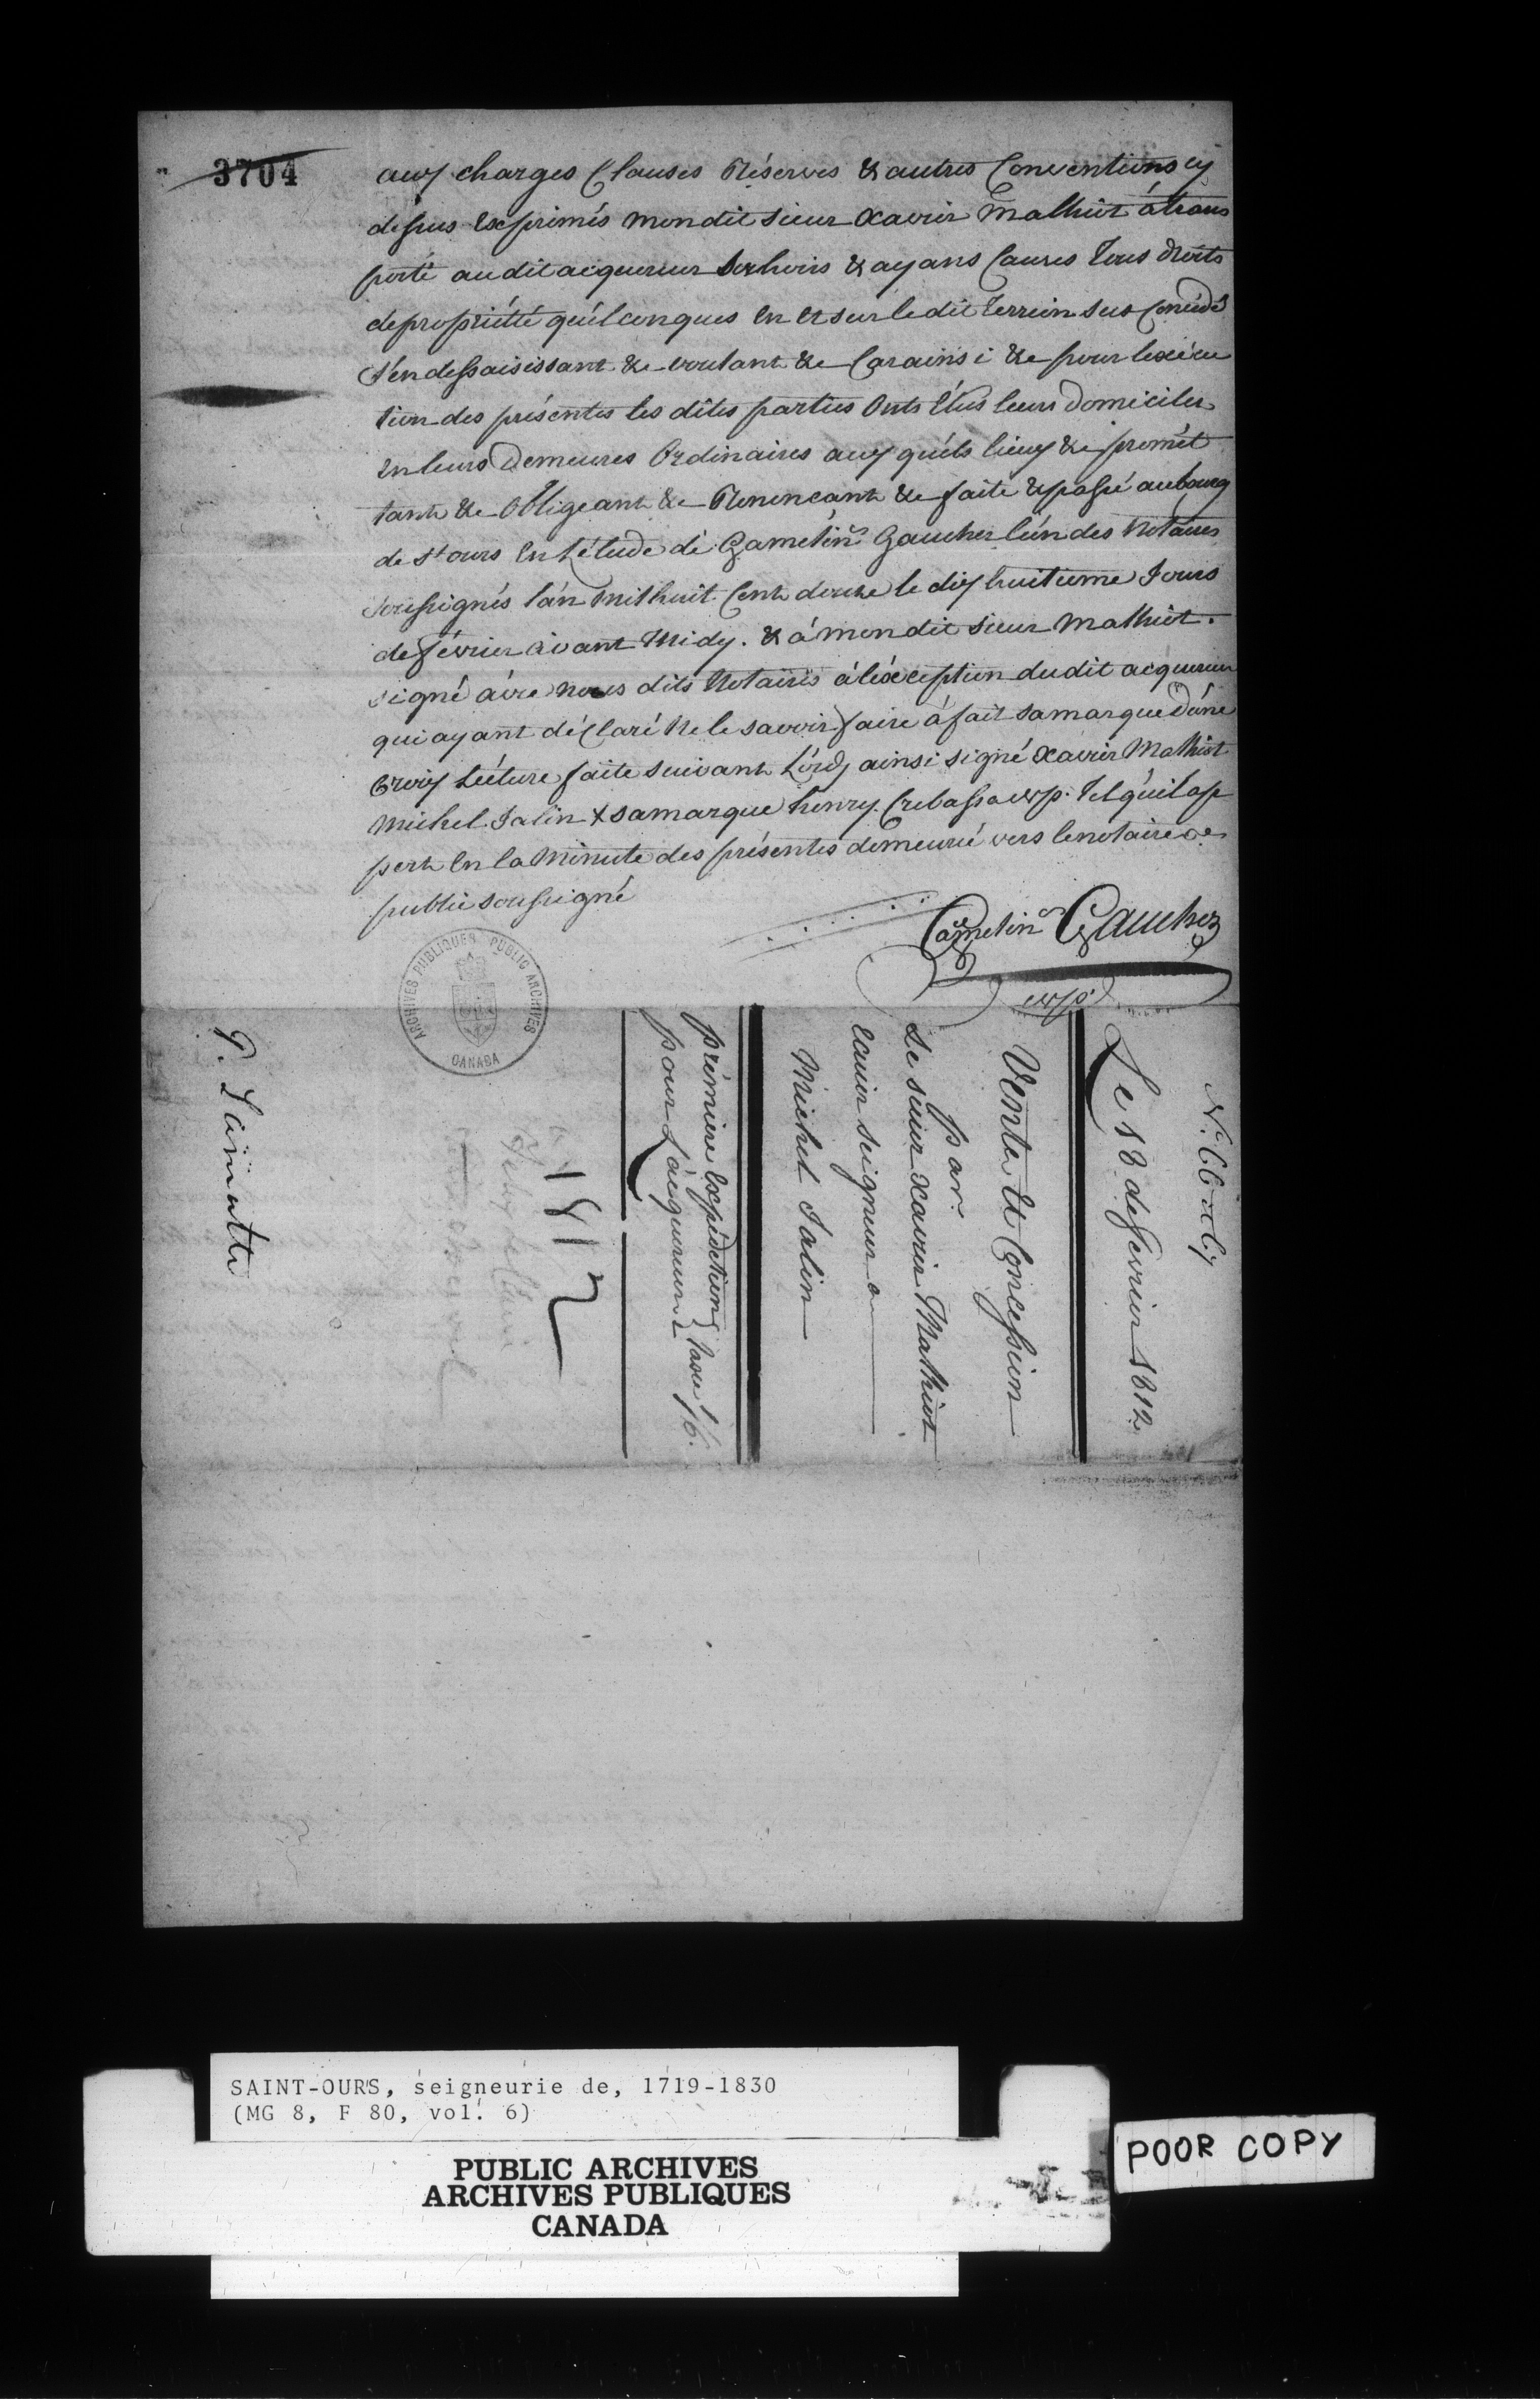 3704
aux charges Clauses Réserves & autres Conventions cy
dessus Exprimés mondit sieur Xavier Malhiot à trans
porté audit acquereur Ses hoirs & ayans Causes Tous droits
de propriétté quélconques En et sur le dit Terrein sus Concédé
s'en dessaisissant &c voulant &c Car ainsi &c pour l'exécu
tion des présentes les dites parties Onts Elus leurs Domiciles
En leurs Demeures Ordinaires aux quéls lieux &c promét
tant &c Obligeant &c Renoncant &c faite & passé au bourg
de St ours En L'étude de Gamelin Gaucher l'ún des Notaires
soussignés l'án mil huit Cent douze le dix huitieme Jours
de février avant Midy. & à mondit sieur Malhiot.
signé avec nous dits Notaires à l'exception du dit acquereur
qui ayant déClaré Ne le savoir faire à fait sa marque d'úne
Croix Lécture faite suivant L'ord, ainsi signé Xavier Malhiot
Michel Jalin X sa marque henry Crebassa np. Tel qu'il ap
pert En la Minute des présentes demeuré vers le notaire
public soussigné
Gamelin Gaucher
np.
ARCHIVES PUBLIQUES PUBLIC ARCHIVES
CANADA
Le 18 de fevrier 1812
Vente Et Concession
par.
Le sieur Xavier Malhiot
Ecuier seigneur
à
Michel Jalin
prémiere Expédition
pour L'acquereur
1812
SAINT-OURS, seigneurie de, 1719-1830
(MG 8, F 80, vol. 6)
PUBLIC ARCHIVES
ARCHIVES PUBLIQUES
CANADA
POOR COPY